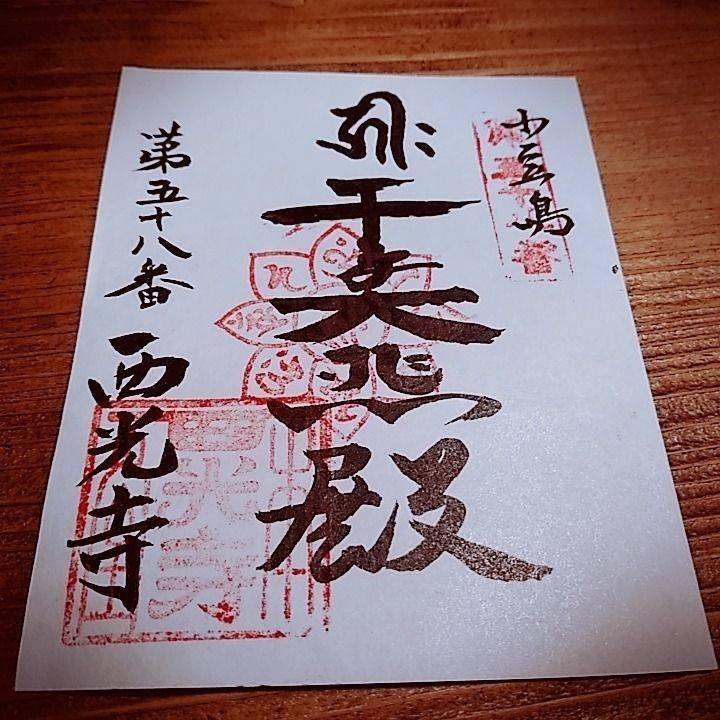 小豆島
大悲殿
第五十八番 西光寺
西光寺